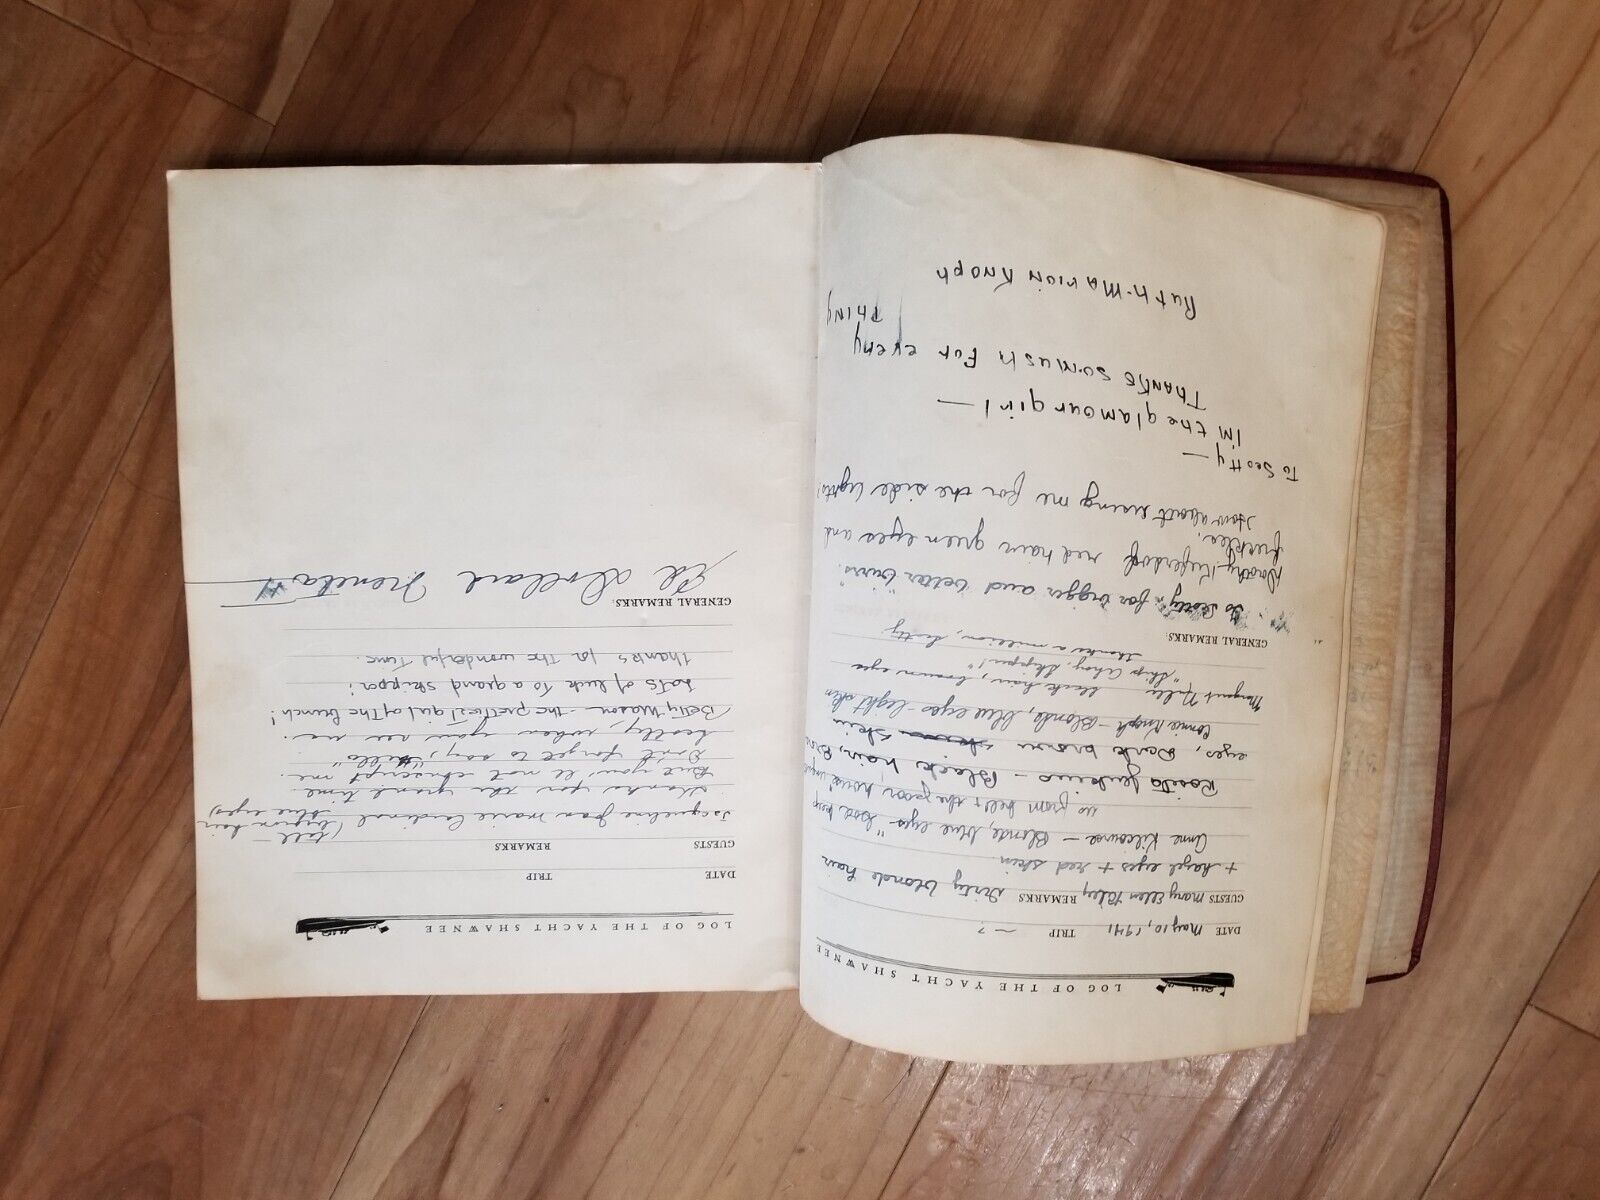 LOG OF THE YACHT SHAWNEE
DATE May 10, 1941 TRIP ~ ?
GUESTS Mary Ellen Riley REMARKS Dirty blonde hair
+ hazel eyes + red skin.
Anne Kilcourse - Blonde, blue eyes "God keep
us from hell & the poor house"
Rosita Jenkins - Black hair, Bro
eyes, Dark brown skin
Connie Knoph - Blonde, blue eyes - light skin
Margaret black hair, brown eyes
"Ship Ahoy, Skipper!"
thanks a million, Scotty
GENERAL REMARKS:
To Scotty - for bigger and better
Dorothy red hair green eyes and
freckles.
How about using me for the side lights!
To Scotty —
I'm the glamour girl —
Thanks so mush For every
thing
Ruth-Marion Knoph
LOG OF THE YACHT SHAWNEE
DATE TRIP
GUESTS REMARKS
Jacqueline Joan Marie Cardinal (brown hair
blue eyes)
tall -
thanks for the grand time.
But you'll not conscript me.
Don't forget to say, "hello"
Scotty, when you see me.
Betty Wason - the prettiest girl of the bunch!
Lots of luck to a grand skipper!
thanks for the wonderful time.
GENERAL REMARKS: